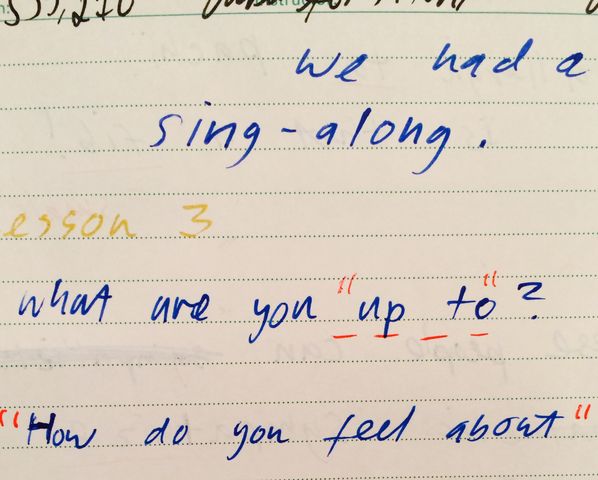 we had a
sing-along.
esson 3
what are you "up to"?
"How do you feel about"